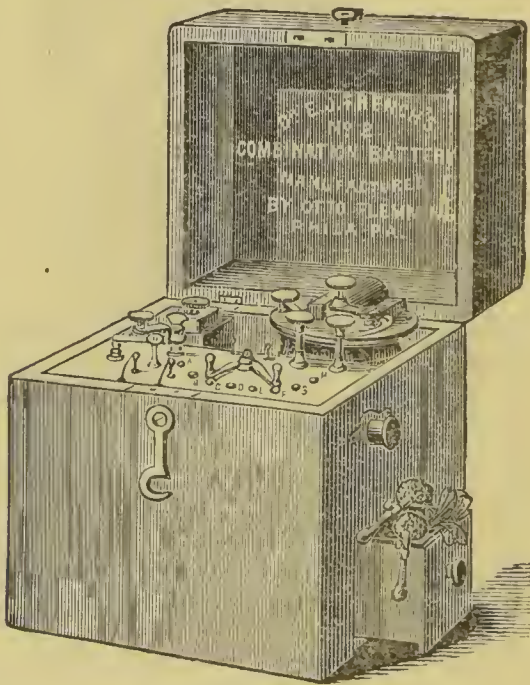 DR. E. J. FRENCH'S
No 2
COMBINATION BATTERY
MANUFACTURED
BY OTTO FLEMMING
PHILA. PA.